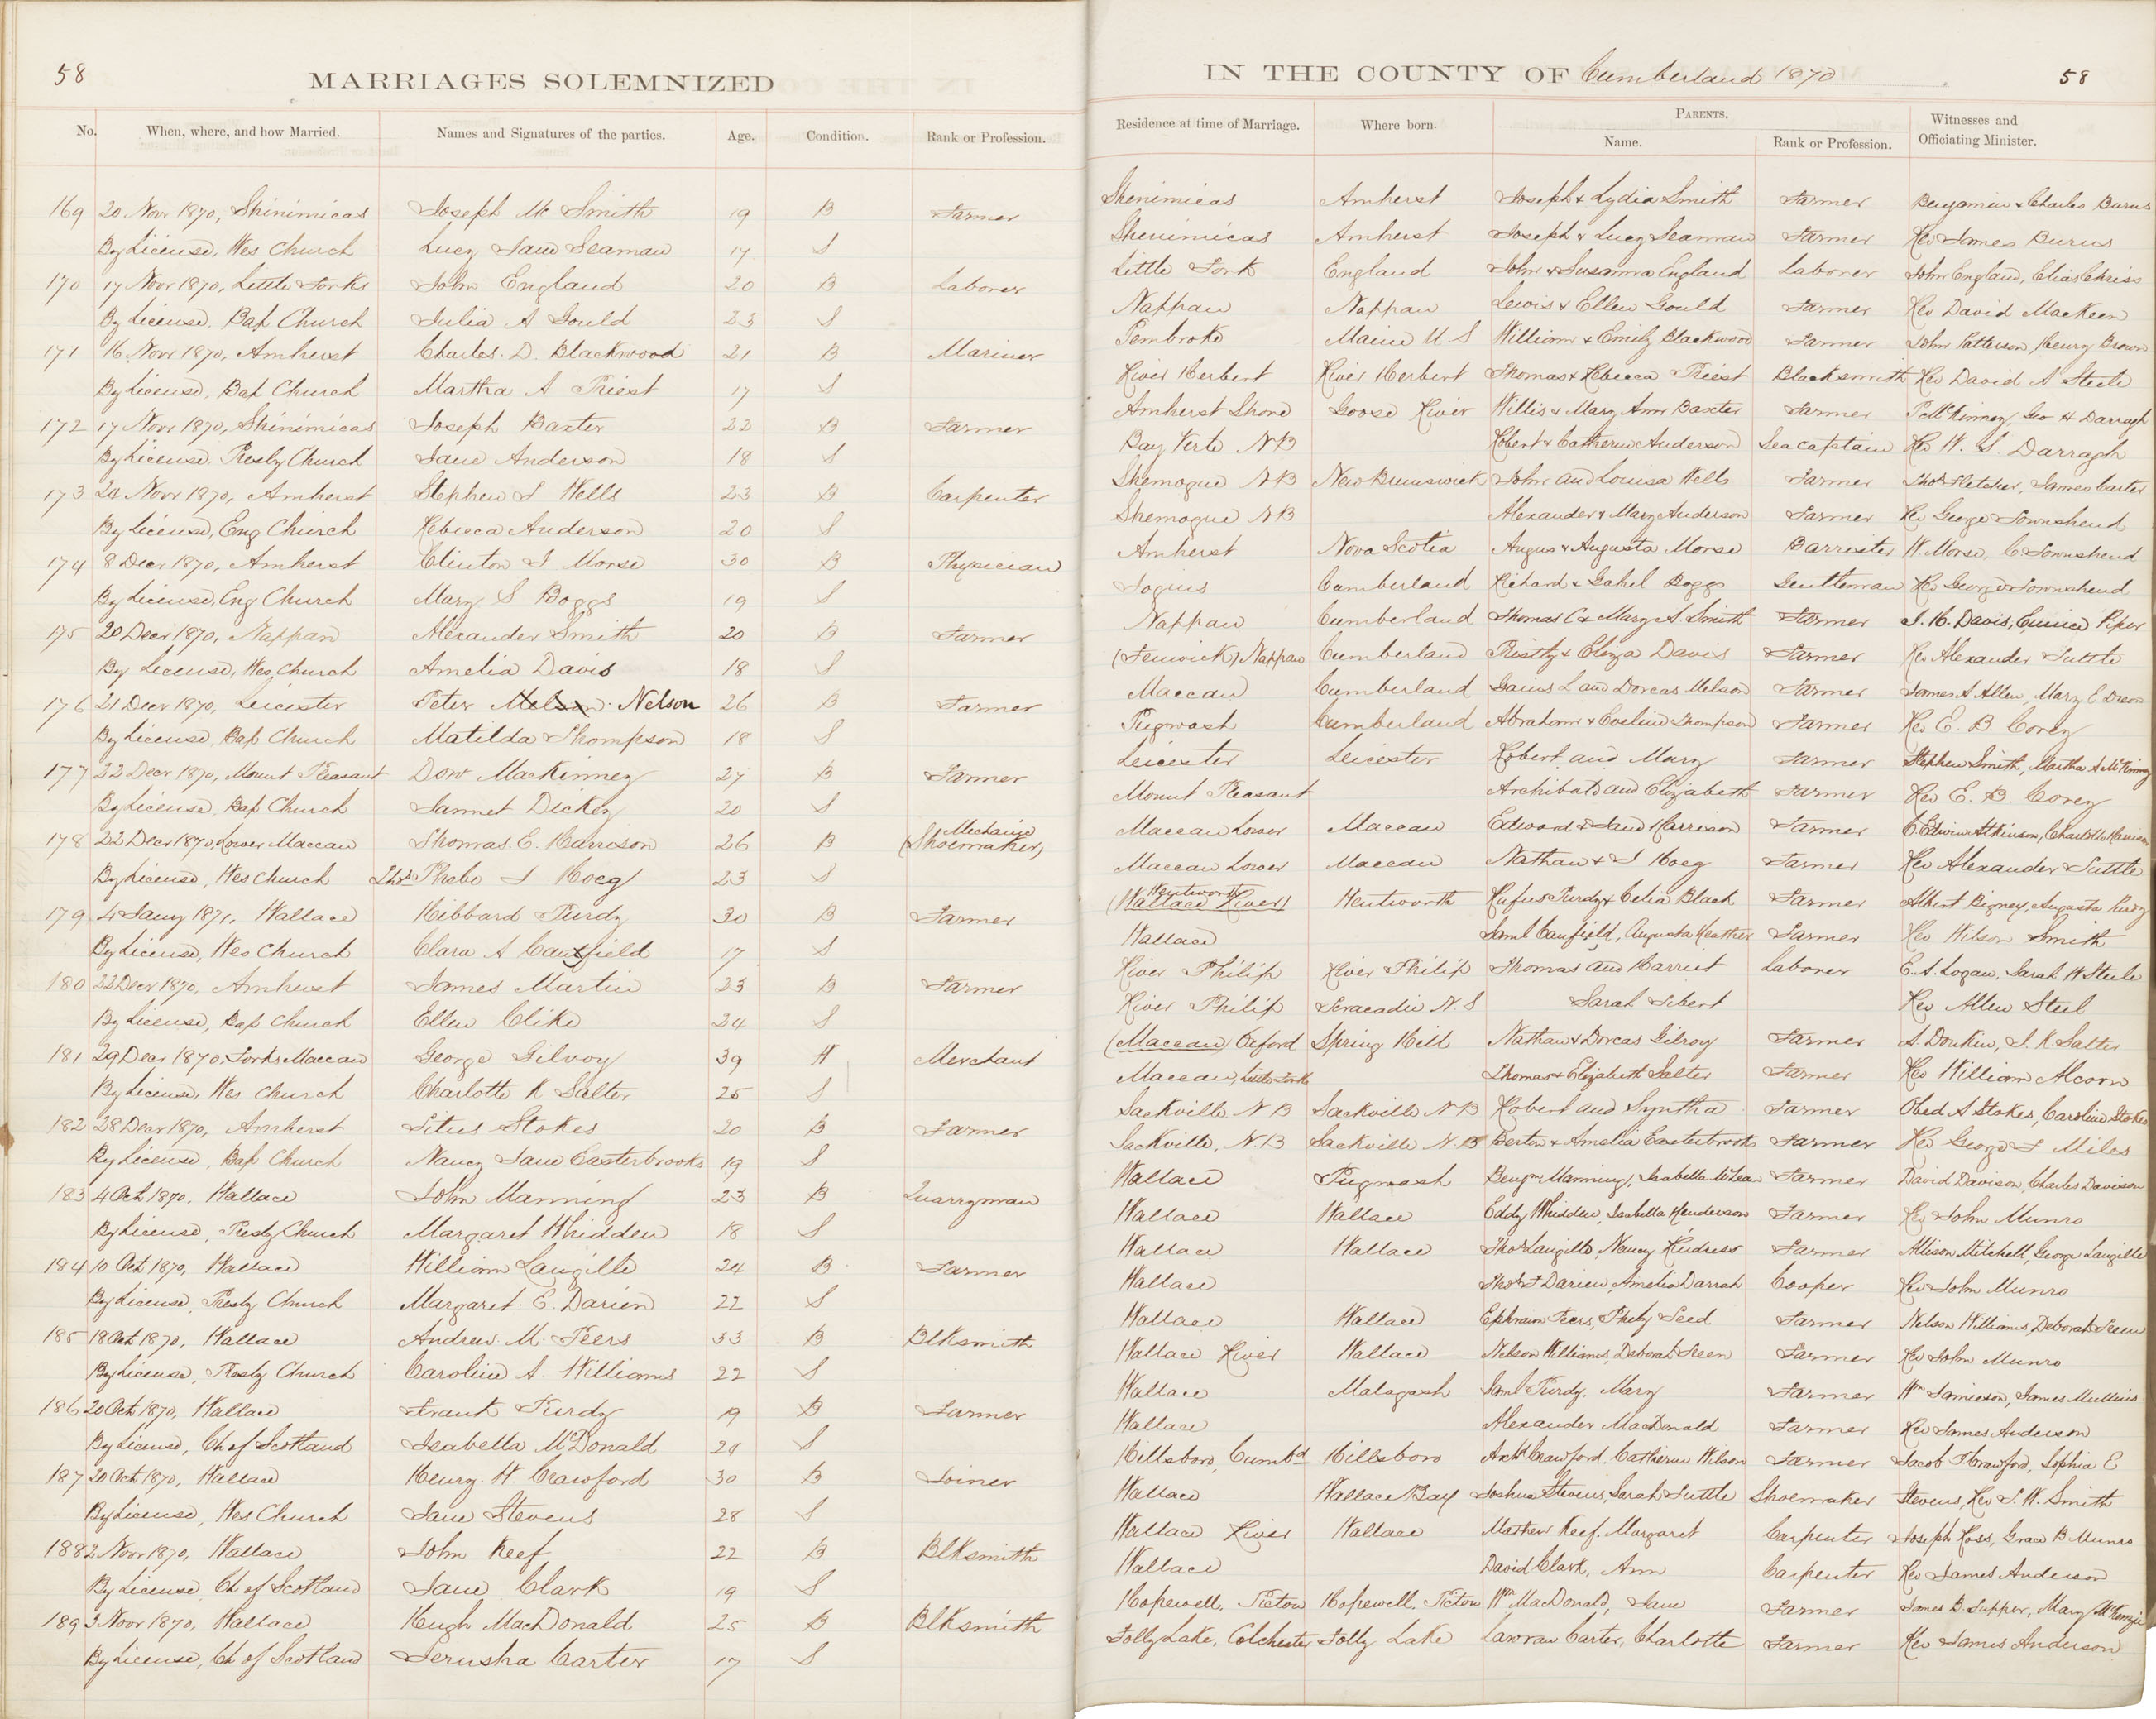 58
MARRIAGES SOLEMNIZED
No. When, where, and how Married. Names and Signatures of the parties. Age. Condition. Rank or Profession.
169 20 Novr 1870, Shinimicas Joseph Mc Smith 19 B Farmer
By License, Wes Church Lucy Jane Seaman 17 S
170 17 Novr 1870, Little Forks John England 20 B Laborer
By License, Bap Church Julia A Gould 23 S
171 16 Novr 1870, Amherst Charles D. Blackwood 21 B Mariner
By License, Bap Church Martha A Priest 17 S
172 17 Novr 1870, Shinimicas Joseph Baxter 22 B Farmer
By License, Presby Church Jane Anderson 18 S
173 24 Novr 1870, Amherst Stephen S Wells 23 B Carpenter
By License, Eng Church Rebecca Anderson 20 S
174 8 Decr 1870, Amherst Clinton J Morse 30 B Physician
By License, Eng Church Mary S Boggs 19 S
175 20 Decr 1870, Nappan Alexander Smith 20 B Farmer
By License, Wes Church Amelia Davis 18 S
176 21 Decr 1870, Leicester Peter Melson Nelson 26 B Farmer
By License, Bap Church Matilda Thompson 18 S
177 22 Decr 1870, Mount Pleasant Dow MacKinney 27 B Farmer
By License, Bap Church Jannet Dickey 20 S
178 22 Decr 1870, Lower Maccan Thomas. E. Harrison 26 B Mechanic (Shoemaker)
By License, Wes Church Thos Phebe J Hoeg 23 S
179 4 Jany 1871, Wallace Hibbard Purdy 30 B Farmer
By License, Wes Church Clara A Canfield 17 S
180 22 Decr 1870, Amherst James Martin 23 B Farmer
By License, Bap Church Ellen Clike 24 S
181 29 Decr 1870, Forks Maccan George Gilroy 39 W Merchant
By License, Wes Church Charlotte K Salter 25 S
182 28 Decr 1870, Amherst Titus Stokes 20 B Farmer
By License, Bap Church Nancy Jane Easterbrooks 19 S
183 4 Oct 1870, Wallace John Manning 23 B Quarryman
By License, Presby Church Margaret Whidden 18 S
184 10 Oct 1870, Wallace William Langille 24 B Farmer
By License, Presby Church Margaret. E. Darien 22 S
185 18 Oct 1870, Wallace Andrew M Peers 33 B BlKsmith
By License, Presby Church Caroline A Williams 22 S
186 20 Oct 1870, Wallace Frank Purdy 19 B Farmer
By License, Ch of Scotland Isabella McDonald 21 S
187 20 Oct 1870, Wallace Henry W Crawford 30 B Joiner
By License, Wes Church Jane Stevens 28 S
188 2 Novr 1870, Wallace John Keef 22 B BlKsmith
By License, Ch of Scotland Jane Clark 19 S
189 3 Novr 1870, Wallace Hugh MacDonald 25 B BlKsmith
By License, Ch of Scotland Jerusha Carter 17 S
IN THE COUNTY OF Cumberland 1870 58
Residence at time of Marriage. Where born. PARENTS. Name. Rank or Profession. Witnesses and Officiating Minister.
Shenimicas Amherst Joseph & Lydia Smith Farmer Benjamin & Charles Burns
Shenimicas Amherst Joseph & Lucy Seaman Farmer Rev James Burns
Little Fork England John & Susanna England Laborer John England, Elias Chriss
Nappan Nappan Lewis & Ellen Gould Farmer Rev David MacKeen
Pembroke Maine U S William & Emily Blackwood Farmer John Patterson, Henry Brown
River Herbert River Herbert Thomas & Rebecca Priest Blacksmith Rev David A Steele
Amherst Shore Goose River Willis & Mary Ann Baxter Farmer P McKinney, Geo H Darragh
Bay Verte N B Robert & Catherine Anderson Sea captain Rev W. S. Darragh
Shemogue N B New Brunswick John and Louisa Wells Farmer Thos Fletcher, James Carter
Shemogue N B Alexander & Mary Anderson Farmer Rev George Townshend
Amherst Nova Scotia Angus & Augusta Morse Barrister W. Morse, C Townshend
Joguis Cumberland Richard & Gahel Boggs Gentleman Rev George Townshend
Nappan Cumberland Thomas C & Mary A. Smith Farmer J. H. Davis, Eunice Piper
(Fenwick) Nappan Cumberland Eliza Davis Farmer Rev Alexander Tuttle
Maccan Cumberland Gaius L and Dorcas Melson Farmer James A Allen, Mary E
Pugwash Cumberland Abraham & Eveline Thompson Farmer Rev E. B. Corey
Leicester Leicester Robert and Mary Farmer Stephen Smith, Martha A McKinney
Mount Pleasant Archibald and Elizabeth Farmer Rev E. B. Corey
Maccan Lower Maccan Edward & Jane Harrison Farmer C. Edwin Atkinson, Charlotte Harrison
Maccan Lower Maccan Nathan & J Hoeg Farmer Rev Alexander Tuttle
Wentworth (Wallace River) Wentworth Rufus Purdy & Celia Black Farmer Albert Bigney, Augusta Purdy
Wallace Saml Canfield, Augusta Heather Farmer Rev Wilson Smith
River Philip River Philip Thomas and Harriet Laborer E. A. Logan, Sarah H Steele
River Philip Tracadie N. S Sarah Sebert Rev Allen Steel
(Maccan) Oxford Spring Hill Nathan & Dorcas Gilroy Farmer A. Donkin, J. K Salter
Maccan, Little Forks Thomas & Elizabeth Salter Farmer Rev William Alcorn
Sackville N B Sackville N B Robert and Syntha Farmer Obed A Stokes, Caroline Stokes
Sackville, N. B Sackville N. B Berten & Amelia Easterbrooks Farmer Rev George F Miles
Wallace Pugwash Benjmn Manning, Isabella McLean Farmer David Davison, Charles Davison
Wallace Wallace Eddy Whidden, Isabella Henderson Farmer Rev John Munro
Wallace Wallace Thos Langille, Nancy Farmer Allison Mitchell, George Langille
Wallace Thos F Darien, Amelia Darrah Cooper Rev John Munro
Wallace Wallace Ephraim Peers, Pheby Seed Farmer Nelson Williams, Deborah Treen
Wallace River Wallace Nelson Williams, Deborah Treen Farmer Rev John Munro
Wallace Malagash Saml Purdy, Mary Farmer Wm Jamieson, James Mullins
Wallace Alexander MacDonald Farmer Rev James Anderson
Hillsboro, Cumbd Hillsboro Archd Crawford. Catherine Wilson Farmer Jacob F Crawford, Sophia E
Wallace Wallace Bay Joshua Stevens, Sarah Tuttle Shoemaker Stevens, Rev T. W. Smith
Wallace River Wallace Mathew Keef. Margaret Carpenter Joseph Ross, Grace B Munro
Wallace David Clark, Ann Carpenter Rev James Anderson
Hopewell, Pictou Hopewell, Pictou Wm MacDonald, Jane Farmer James B. Tupper, Mary McKenzie
Folly Lake, Colchester Folly Lake Lawran Carter, Charlotte Farmer Rev James Anderson